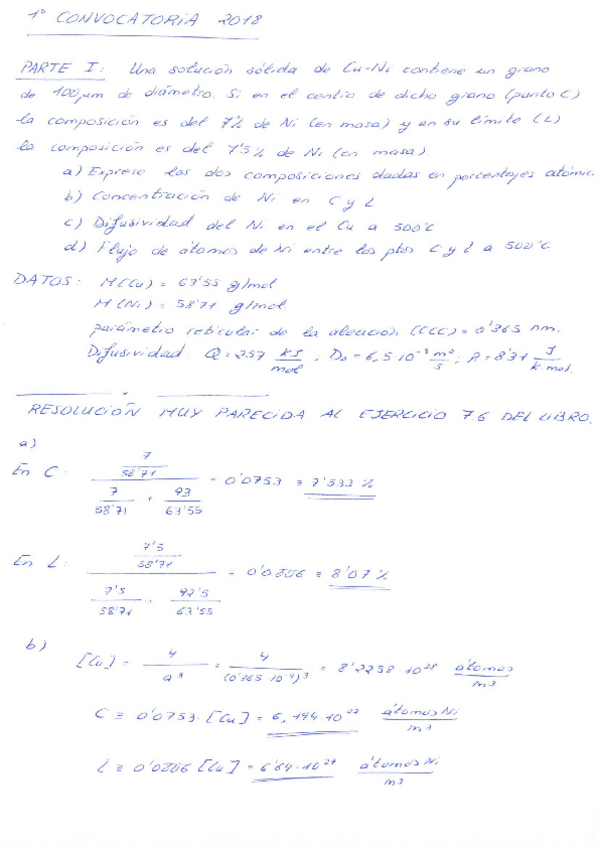 1º CONVOCATORIA 2018
PARTE I: Una solución sólida de Cu-Ni contiene un grano
de 100μm de diámetro. Si en el centro de dicho grano (punto C)
la composición es del 7% de Ni (en masa) y en su límite (L)
la composición es del 7'5% de Ni (en masa).
a) Exprese las dos composiciones dadas en porcentajes atómic.
b) Concentración de Ni en C y L
c) Difusividad del Ni en el Cu a 500ºC
d) Flujo de átomos de Ni entre los ptos C y L a 500ºC
DATOS: M(Cu) = 63'55 g/mol
M(Ni) = 58'71 g/mol.
parámetro reticular de la aleación (CCC) = 0'365 nm.
Difusividad: Q = 257 kJ/mol ; D₀ = 6,5·10⁻³ m²/s ; R = 8'31 J/k·mol.
RESOLUCIÓN MUY PARECIDA AL EJERCICIO 7.6 DEL LIBRO.
a)
En C: (7/58'71) / (7/58'71 + 93/63'55) = 0'0753 ≡ 7'533 %
En L: (7'5/58'71) / (7'5/58'71 + 92'5/63'55) = 0'0806 ≡ 8'07 %
b)
[Cu] = 4/a³ = 4/(0'365·10⁻⁹)³ = 8'2258·10²⁸ átomos/m³
C ≡ 0'0753·[Cu] = 6,194·10²⁷ átomos Ni/m³
L ≡ 0'0806 [Cu] = 6'64·10²⁷ átomos Ni/m³